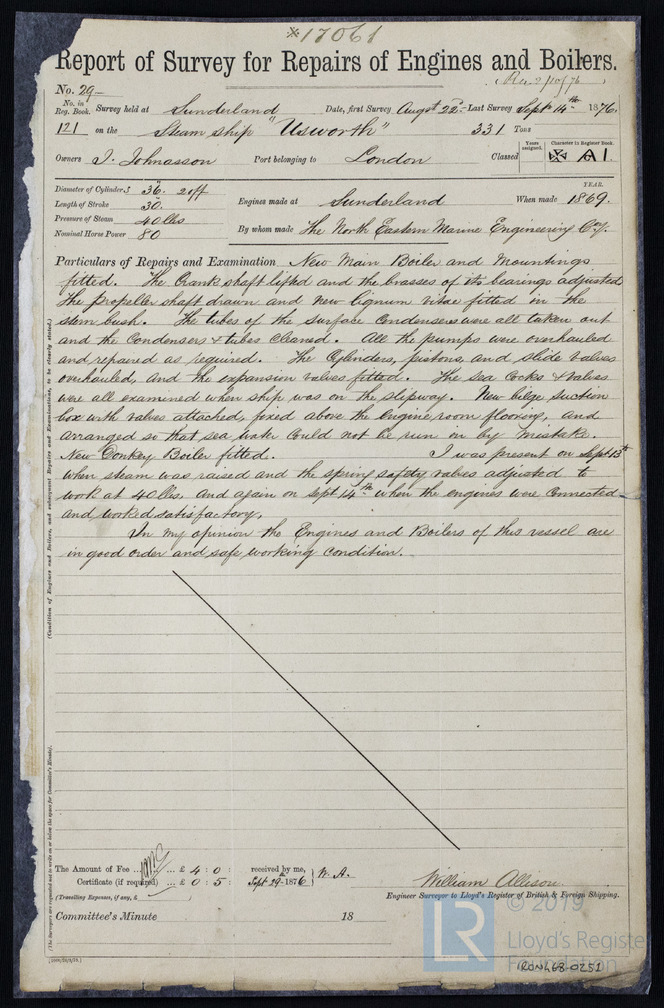 *17061
Report of Survey for Repairs of Engines and Boilers.
(Rec 2/10/76)
No. 29
No. in Reg. Book. Survey held at Sunderland Date, first Survey Augst 22nd Last Survey Sept 14th 1876.
121 on the Steam ship "Usworth" 331 Tons
Owners J. Johnasson Port belonging to London Classed Years assigned. Character in Register Book. A1.
Diameter of Cylinders 36. 2 off
Length of Stroke 30.
Pressure of Steam 40 lbs
Nominal Horse Power 80
Engines made at Sunderland When made YEAR. 1869.
By whom made The North Eastern Marine Engineering Coy.
Particulars of Repairs and Examination New Main Boiler and Mountings
fitted. The Crank shaft lifted and the brasses of its bearings adjusted
The propeller shaft drawn and new lignum vitae fitted in the
stern bush. The tubes of the Surface Condensers were all taken out
and the Condensers & tubes cleansd. All the pumps were overhauled
and repaired as required. The Cylinders, pistons, and slide valves
overhauled, and the expansion valves fitted. The sea Cocks & Valves
were all examined when ship was on the slipway. New bilge suction
box with valves attached, fixed above the Engine room flooring, and
arranged so that sea water could not be run in by mistake.
New Donkey Boiler fitted. I was present on Sept 13th
when steam was raised and the spring safety valves adjusted to
work at 40 lbs, and again on Sept 14th when the engines were Connected
and worked satisfactory.
In my opinion the Engines and Boilers of this vessel are
in good order and safe working condition.
(Condition of Engines and Boilers, and subsequent Repairs and Examinations, to be clearly stated.)
(The Surveyors are requested not to write on or below the space for Committee's Minute).
The Amount of Fee ... £ 4 : 0 : received by me,
Certificate (if required) ... £ 0 : 5 : Sept 29th 1876 W. A.
(Travelling Expenses, if any, £
William Allison
Engineer Surveyor to Lloyd's Register of British & Foreign Shipping.
Committee's Minute 18
© 2019
LR
Lloyd's Registe
Foundation
RON468-0251